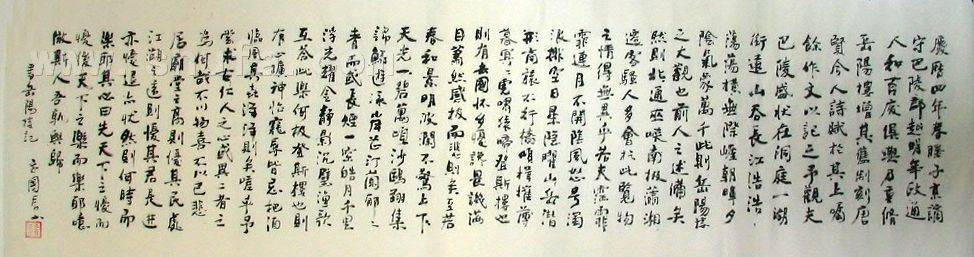 慶曆四年春滕子京謫
守巴陵郡越明年政通
人和百廢俱興乃重修
岳陽樓增其舊制刻唐
賢今人詩賦於其上囑
餘作文以記之予觀夫
巴陵勝狀在洞庭一湖
銜遠山吞長江浩浩
蕩蕩橫無際崖朝暉夕
陰氣象萬千此則岳陽樓
之大觀也前人之述備矣
然則北通巫峽南極瀟湘
遷客騷人多會於此覽物
之情得無異乎若夫霪雨霏
霏連月不開陰風怒號濁
浪排空日星隱曜山岳潛
形商旅不行檣傾楫摧薄
暮冥冥虎嘯猿啼登斯樓也
則有去國懷鄉憂讒畏譏滿
目蕭然感極而悲則矣至若
春和景明波瀾不驚上下
天光一碧萬頃沙鷗翔集
錦鱗游泳岸芷汀蘭郁郁
青而或長煙一空皓月千里
浮光耀金靜影沉璧漁歌
互答此樂何極登斯樓也則
有心曠神怡寵辱皆忘把酒
臨風其喜洋洋則矣嗟乎予
嘗求古仁人之心或異二者之
為何哉不以物喜不以己悲
居廟堂之高則憂其民處
江湖之遠則憂其君是進
亦憂退亦憂然則何時而
樂耶其必曰先天下之憂而
憂後天下之樂而樂歟噫
微斯人吾孰與歸
書岳陽樓記